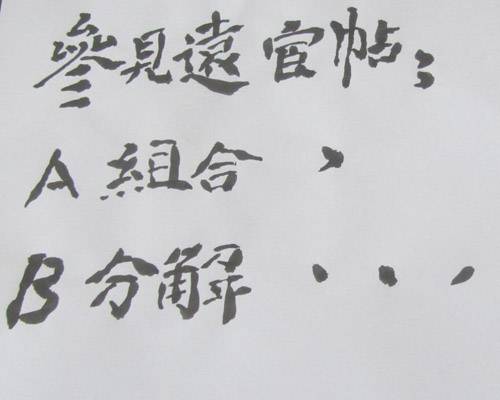 參見遠宦帖；
A 組合 ，
B 分解 ...